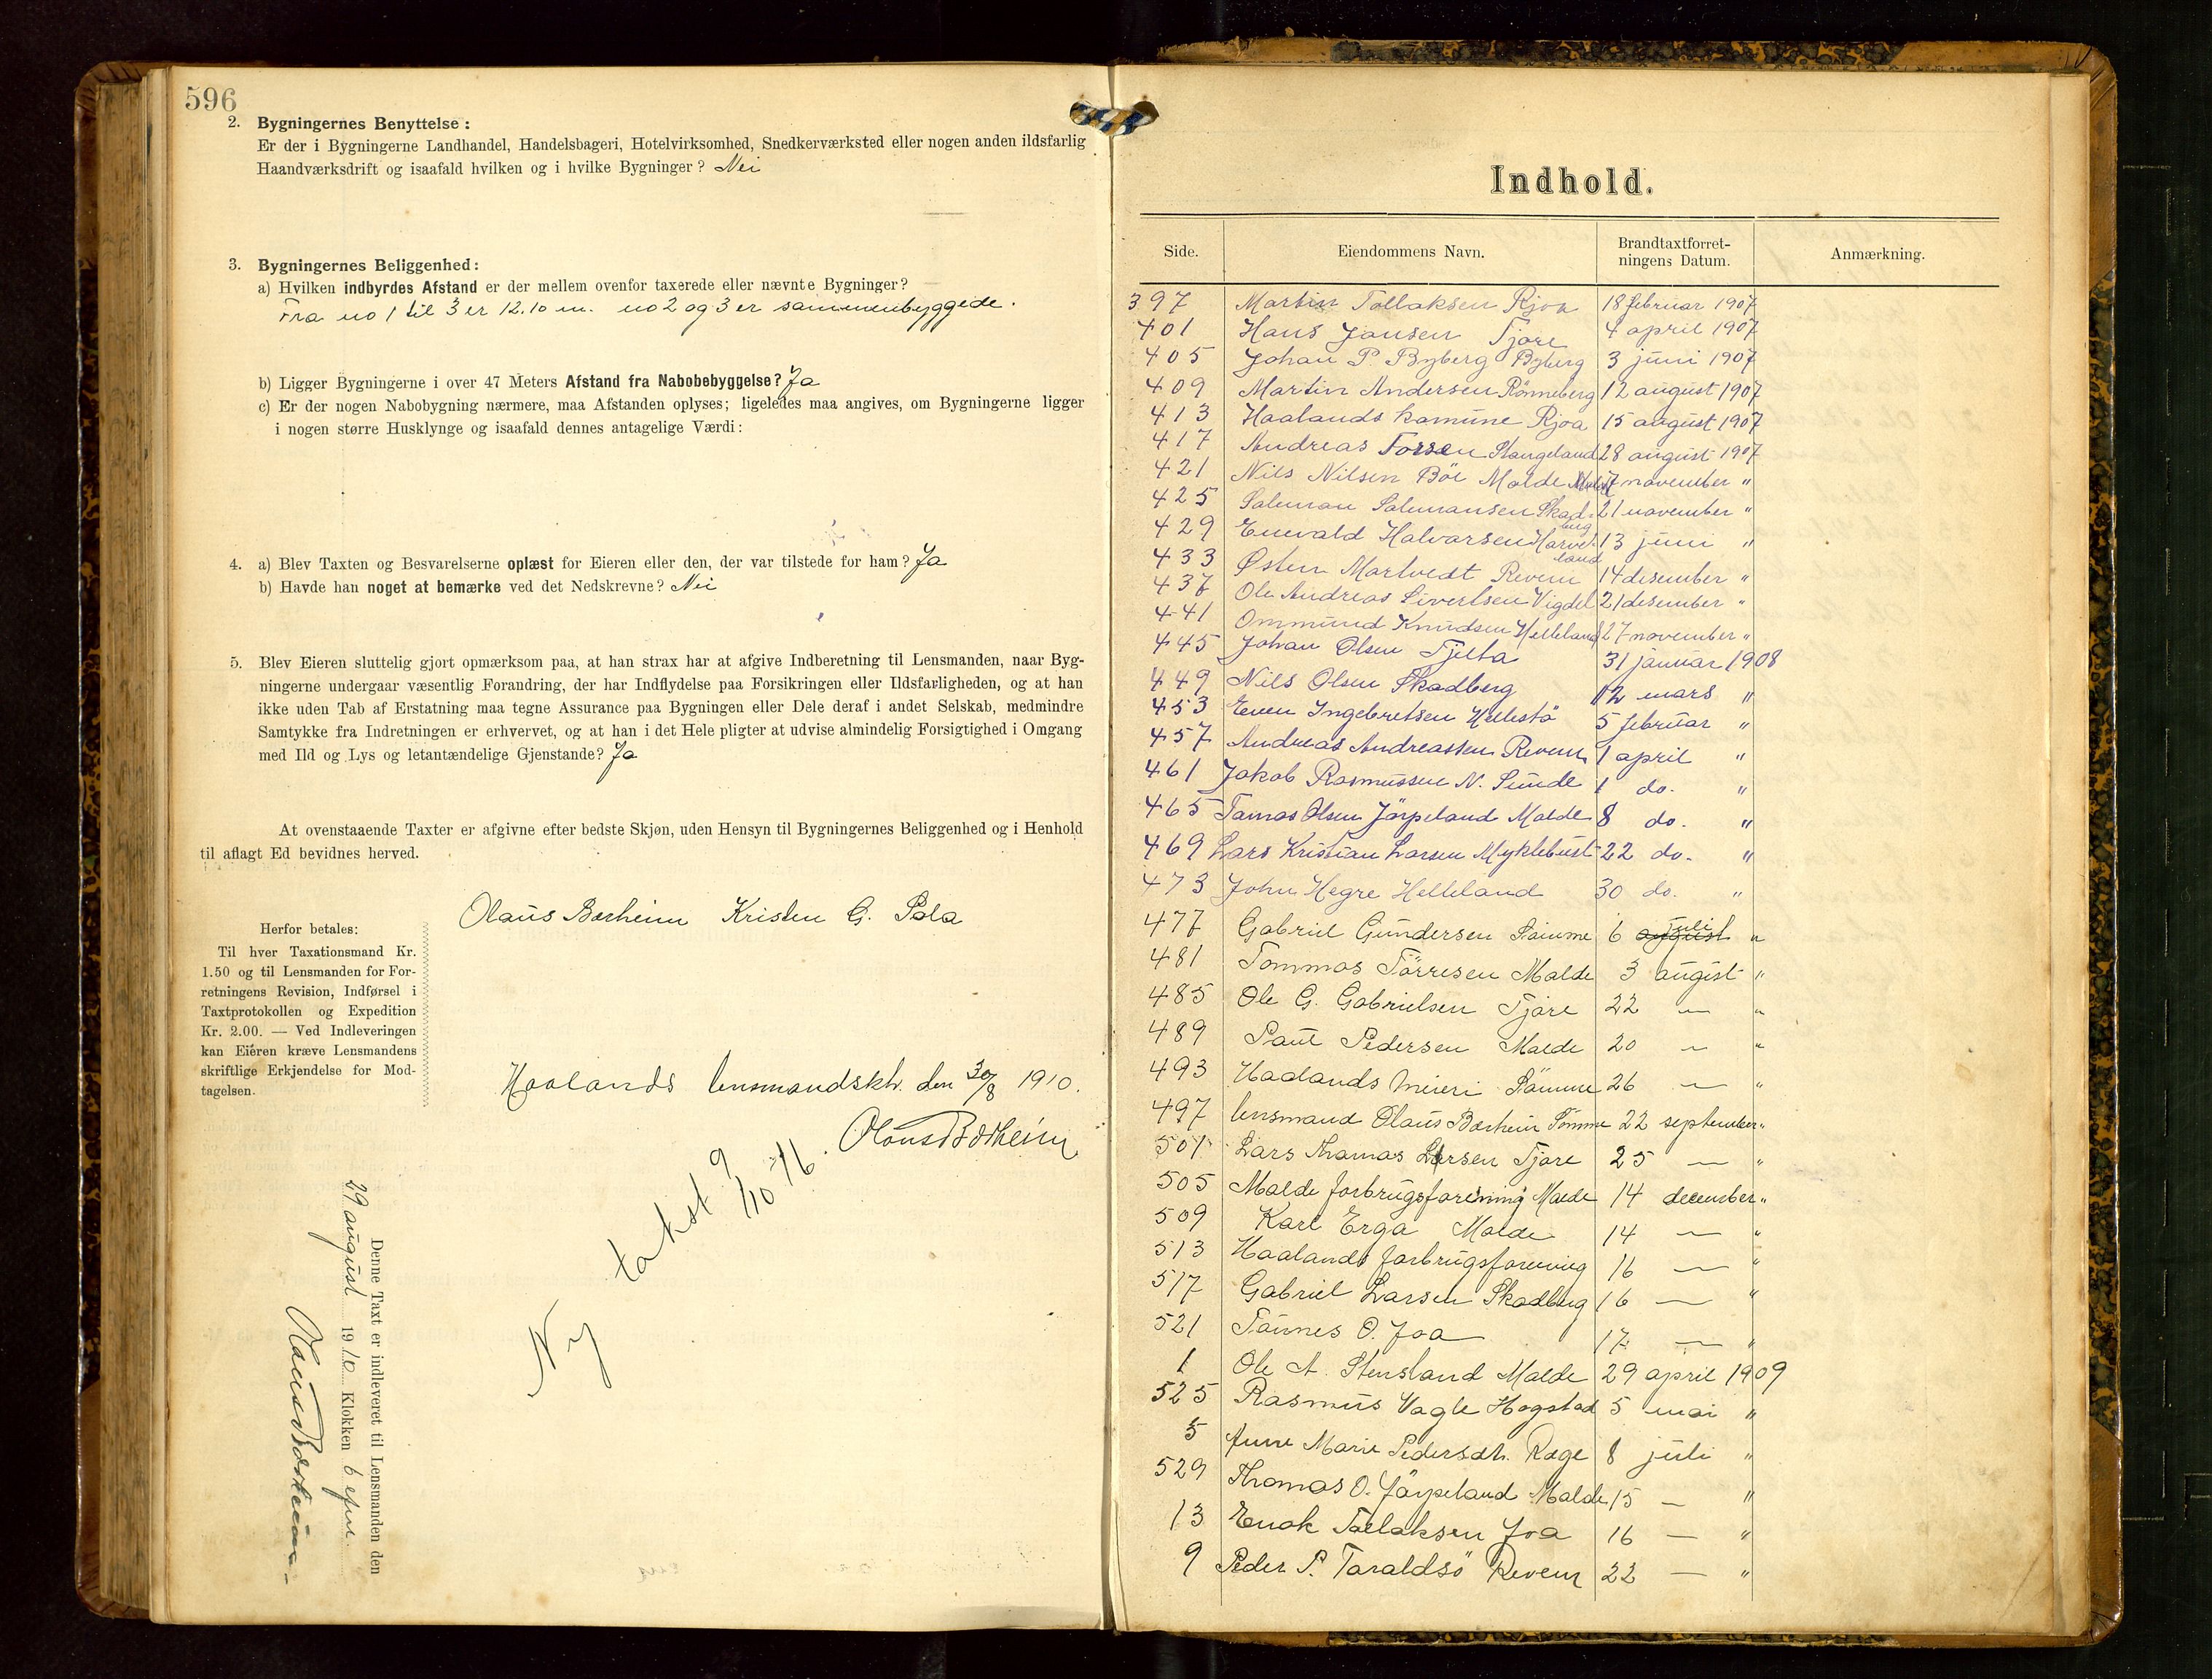 596
2. Bygningernes Benyttelse:
Er der i Bygningerne Landhandel, Handelsbageri, Hotelvirksomhed, Snedkerværksted eller nogen anden ildsfarlig
Haandværksdrift og isaafald hvilken og i hvilke Bygninger? Nei
3. Bygningernes Beliggenhed:
a) Hvilken indbyrdes Afstand er der mellem ovenfor taxerede eller nævnte Bygninger?
Fra no 1 til 3 er 12.10 m. no 2 og 3 er sammenbyggede.
b) Ligger Bygningerne i over 47 Meters Afstand fra Nabobebyggelse? Ja
c) Er der nogen Nabobygning nærmere, maa Afstanden oplyses; ligeledes maa angives, om Bygningerne ligger
i nogen større Husklynge og isaafald dennes antagelige Værdi:
4. a) Blev Taxten og Besvarelserne oplæst for Eieren eller den, der var tilstede for ham? Ja
b) Havde han noget at bemærke ved det Nedskrevne? Nei
5. Blev Eieren sluttelig gjort opmærksom paa, at han strax har at afgive Indberetning til Lensmanden, naar Byg-
ningerne undergaar væsentlig Forandring, der har Indflydelse paa Forsikringen eller Ildsfarligheden, og at han
ikke uden Tab af Erstatning maa tegne Assurance paa Bygningen eller Dele deraf i andet Selskab, medmindre
Samtykke fra Indretningen er erhvervet, og at han i det Hele pligter at udvise almindelig Forsigtighed i Omgang
med Ild og Lys og letantændelige Gjenstande? Ja
At ovenstaaende Taxter er afgivne efter bedste Skjøn, uden Hensyn til Bygningernes Beliggenhed og i Henhold
til aflagt Ed bevidnes herved.
Olaus Børheim Kristen G. Sola
Herfor betales:
Til hver Taxationsmand Kr.
1.50 og til Lensmanden for For-
retningens Revision, Indførsel i
Taxtprotokollen og Expedition
Kr. 2.00. — Ved Indleveringen
kan Eieren kræve Lensmandens
skriftlige Erkjendelse for Mod-
tagelsen.
Haalands lensmandskt. den 30/8 1910.
Olaus Børheim
Ny takst 9/10 -16.
Denne Taxt er indleveret til Lensmanden den
29 august 1910 Klokken 6 efm.
Olaus Børheim
Indhold.
Side. Eiendommens Navn. Brandtaxtforret-
ningens Datum. Anmærkning.
397 Martin Tollaksen Rjoa 18 februar 1907
401 Hans Jansen Tjore 4 april 1907
405 Johan P. Byberg Byberg 3 juni 1907
409 Martin Andersen Rönneberg 12 august 1907
413 Haalands komune Rjoa 15 august 1907
417 Andreas Forsen Stangeland 28 august 1907
421 Nils Nilsen Böe Malde 7 november "
425 Saleman Salemansen Skad-
berg 21 november "
429 Enevald Halvorsen Harve-
land 13 juni "
433 Østen Martvedt Revem 14 desember "
437 Ole Andreas Sivertsen Vigdel 21 desember "
441 Ommund Knudsen Helleland 27 november "
445 Johan Olsen Tjelta 31 januar 1908
449 Nils Olsen Skadberg 12 mars "
453 Even Ingebretsen Hellestö 5 februar "
457 Andreas Andreassen Revem 1 april "
461 Jakob Rasmussen N. Sunde 1 do. "
465 Tamas Olsen Jörpeland Malde 8 do. "
469 Lars Kristian Larsen Myklebust 22 do. "
473 John Hegre Helleland 30 do. "
477 Gabriel Gundersen Sömme 6 august juli "
481 Tommas Törresen Malde 3 august "
485 Ole G. Gabrielsen Tjore 22 — "
489 Paul Pedersen Malde 20 — "
493 Haalands meieri Sömme 26 — "
497 lensmand Olaus Børheim Sömme 22 september "
501 Lars Thomas Larsen Tjore 25 — "
505 Malde forbrugsforening Malde 14 december "
509 Karl Erga Malde 14 — "
513 Haalands forbrugsforening 16 — "
517 Gabriel Larsen Skadberg 16 — "
521 Tönnes O. Joa 17 — "
1 Ole A. Stensland Malde 29 april 1909
525 Rasmus Vagle Hogstad 5 mai "
5 Anne Marie Pedersdtr. Ræge 8 juli "
529 Thomas O. Jörpeland Malde 15 — "
13 Enok Tollaksen Joa 16 — "
9 Peder P. Taraldsö Revem 22 — "